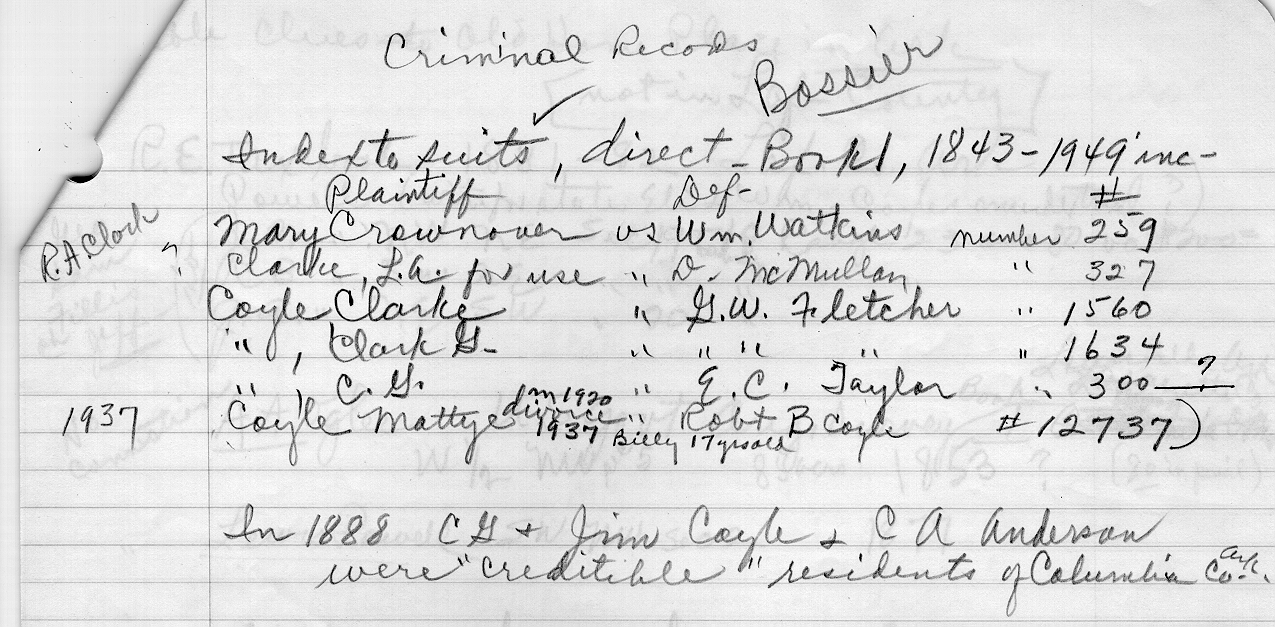 Criminal Records
Bossier
✓
Index to suits, direct - Book 1, 1843 - 1949 inc-
Plaintiff Def- #
R.A. Clark ? Mary Crownover vs Wm. Watkins number 259
Clarke, L.A. for use " D. McMullan " 327
Coyle Clarke " G.W. Fletcher " 1560
" , Clark G. " " " " " 1634
" , C.G. " E.C. Taylor " 300 — ?
1937 Coyle Mattye m 1920 divorce 1937 " Robt B Coyle #12737)
Billy 17 yrs old
In 1888 C G + Jim Coyle & C A Anderson
were "creditible" residents of Columbia Co. Ark.